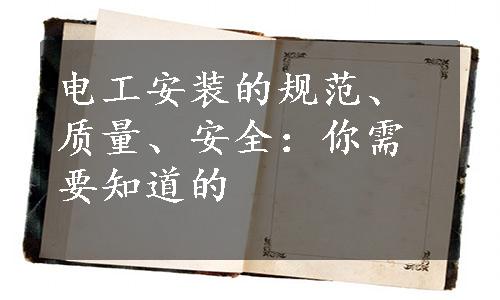 电工安装的规范、
质量、安全：你需
要知道的